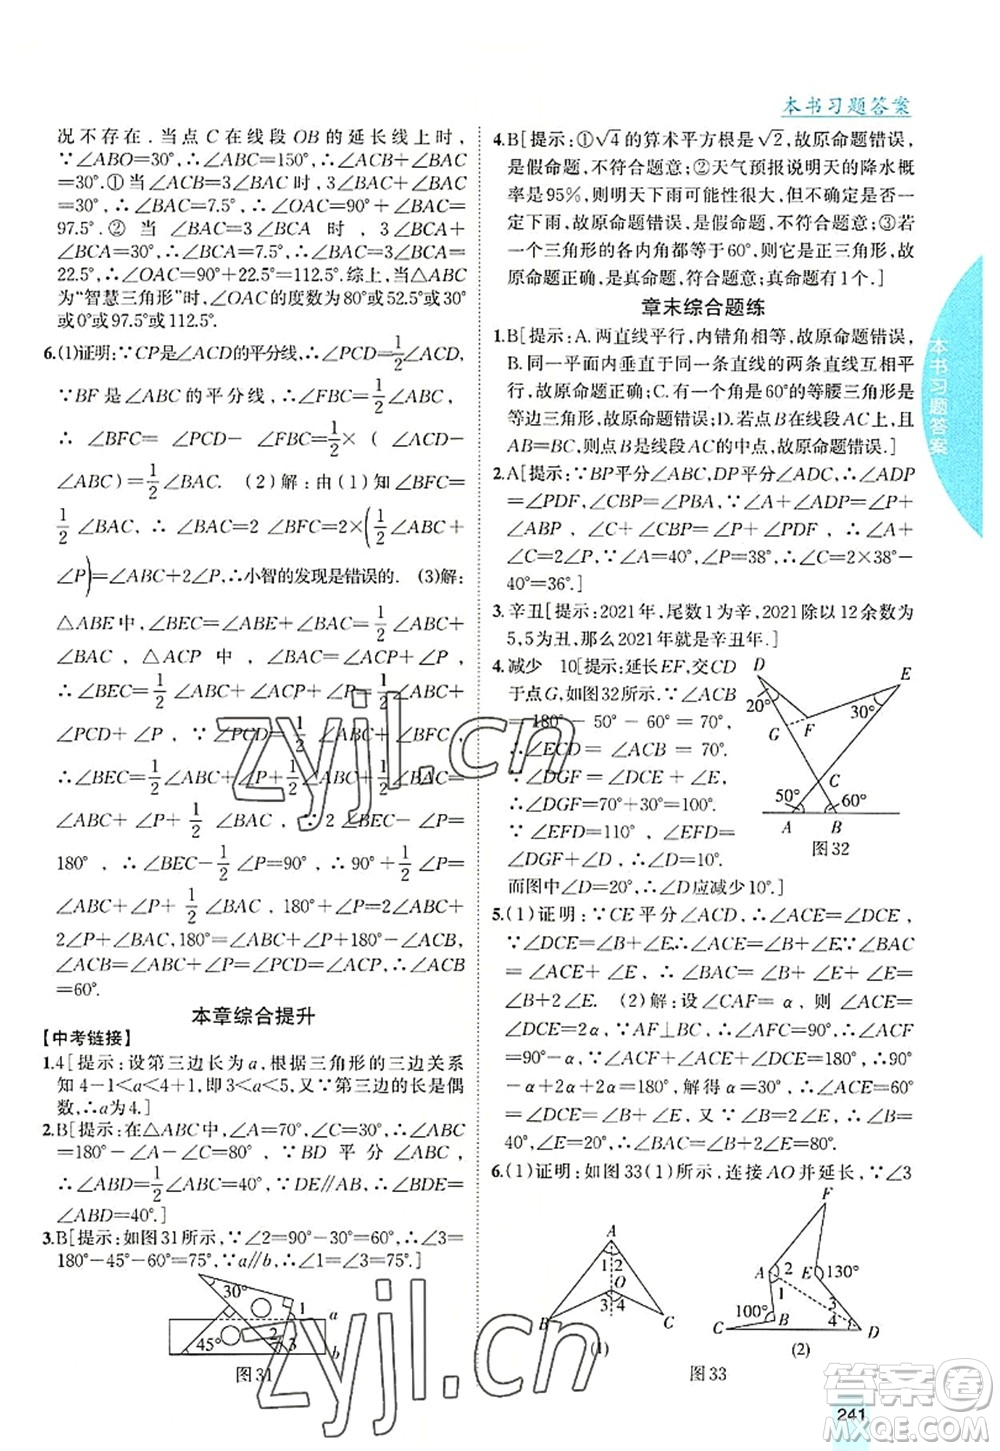 本书习题答案
况不存在.当点C在线段OB的延长线上时,
∵∠ABO=30°,∴∠ABC=150°,∴∠ACB+∠BAC
=30°.①当∠ACB=3∠BAC时,3∠BAC+∠BAC
=30°,∴∠BAC=7.5°,∴∠OAC=90°+∠BAC=
97.5°.②当∠BAC=3∠BCA时,3∠BCA+
∠BCA=30°,∴∠BCA=7.5°,∴∠BAC=3∠BCA=
22.5°,∴∠OAC=90°+22.5°=112.5°.综上,当△ABC
为“智慧三角形”时,∠OAC的度数为80°或52.5°或30°
或0°或97.5°或112.5°.
6.(1)证明:∵CP是∠ACD的平分线,∴∠PCD=1/2∠ACD.
∵BF是∠ABC的平分线,∴∠FBC=1/2∠ABC,
∴∠BFC=∠PCD-∠FBC=1/2×(∠ACD-
∠ABC)=1/2∠BAC. (2)解:由(1)知∠BFC=
1/2∠BAC,∴∠ABC+2∠BFC=2×(1/2∠ABC+
∠P)=∠ABC+2∠P,∴小智的发现是错误的. (3)解:
△ABE中,∠BEC=1/2∠ABC+
∠BAC,△ACP中,∠PCD=∠P+∠BAC,
∴∠BEC=1/2∠ABC+∠BAC=
∠PCD+∠P=1/2∠ABC+∠BFC,
∴∠BEC=1/2∠ABC+∠P+1/2∠BAC=
∠ABC+∠P+1/2∠BAC,∵2∠BEC-∠P=
180°,∴∠BEC-1/2∠P=90°,∴1/2∠P+90°=
∠ABC+∠P+1/2∠BAC,180°+∠P=2∠ABC+
2∠P+∠BAC,180°=∠ABC+∠PCD+∠P+
∠BAC,∵∠ABC+∠P=∠PCD,∴∠ACB
=60°.
本章综合提升
【中考链接】
1.4[提示:设第三边长为a,根据三角形的三边关系
知4-1<a<4+1,即3<a<5,又∵第三边的长是偶
数,∴a为4.]
2.B[提示:在△ABC中,∠A=70°,∠C=30°,∴∠ABC
=180°-∠A-∠C=80°.∵BD平分∠ABC,
∴∠ABD=1/2∠ABC=40°,∵DE∥AB,∴∠BDE=
∠ABD=40°.]
3.B[提示:如图31所示,∠2=90°-30°=60°,∴∠3=
180°-45°-60°=75°,∵a∥b,∴∠1=∠3=75°.]
30°
1
a
45°
2
3
b
图31
4.B[提示:①√4的算术平方根是√2,故原命题错误,
是假命题,不符合题意;②天气预报说明天的降水概
率是95%,则明天下雨可能性很大,但不确定是否一
定下雨,故原命题错误,是假命题,不符合题意;③若
一个三角形的各内角都等于60°,是正三角形,故
原命题正确,是真命题,符合题意;真命题有1个.]
章末综合题练
1.B[提示:A.两直线平行,内错角相等,故原命题错误,
B.同一平面内垂直同一条直线的两条直线互相平
行,故原命题正确;C.有一个角是60°的等腰三角形是
等边三角形,故原命题错误;D.若点B在线段AC上,且
AB=BC,则点B是线段AC的中点,故原命题错误.]
2.A[提示:∵BP平分∠ABC,DP平分∠ADC,∴∠ADP
=∠PDF,∠CBP=∠PBA,∵∠A+∠ADP=∠P+
∠ABP,∠C+∠CBP=∠P+∠PDF,∴∠A+∠C=
2∠P,∵∠A=40°,∠P=38°,∴∠C=2×38°-
40°=36°.]
3.辛丑[提示:2021年,尾数1为辛,2021除以12余数为
5,5为丑,那么2021年就是辛丑年.]
4.减少 10[提示:延长EF,交CD
于点G,如图32所示.∵∠ACB
=180°-50°-60°=70°,
∴∠ECD=∠ACB=70°.
∵∠DGF=∠DCE+∠E,
∴∠DGF=70°+30°=100°.
∵∠EFD=110°,∠EFD=
∠DGF+∠D,∴∠D=10°.
而图中∠D=20°,∴∠D应减少10°.]
D
E
20°
F
30°
G
C
50°
60°
A
B
图32
5.(1)证明:∵CE平分∠ACD,∴∠ACE=∠DCE,
∵∠DCE=∠B+∠E,∴∠ACE=∠B+∠E,
∵∠BAC=∠ACE+∠E,∴∠BAC=∠B+∠E
+∠E=∠B+2∠E. (2)解:设∠CAF=α,则∠ACF
=90°-α,∵∠ACE+∠DCE+∠ACF=180°,
∴∠ACE=∠DCE=45°+1/2α,∵∠BAC=∠B+2∠E=
180°-α,解得∠ACE=∠DCE=70°,又∵∠B=
40°,∠E=30°,∴∠ACE=∠B+∠E=80°.
6.(1)证明:如图33(1)所示,连接AO并延长,∵∠3
A
1
2
O
3
4
B
C
(1)
F
A
2
E
130°
1
100°
B
3
4
C
D
(2)
图33
本书习题答案
241
zyjl.cn
zyjl.cn
答案圈
MXQE.COM